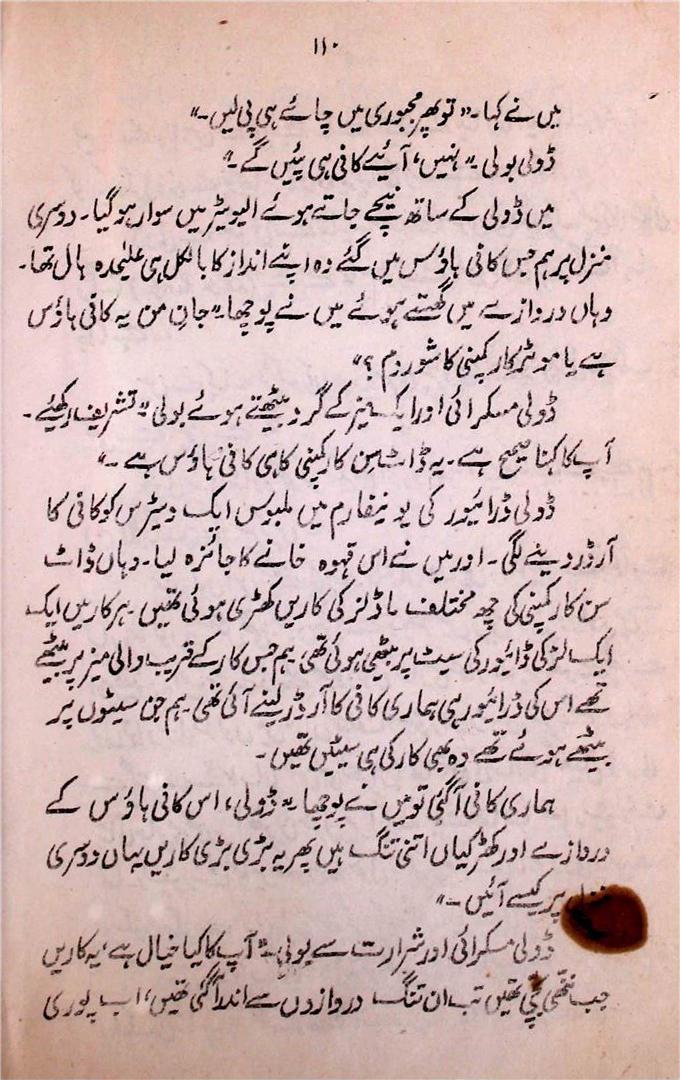 ۱۱۰
میں نے کہا۔ ”تو پھر مجبوری میں چائے ہی پی لیں۔“
ڈولی بولی۔ ”نہیں، آئیے کافی ہی پئیں گے۔“
میں ڈولی کے ساتھ نیچے جاتے ہوئے الیویٹر میں سوار ہو گیا۔ دوسری
منزل پر ہم جس کافی ہاؤس میں گئے وہ اپنے انداز کا بالکل ہی علیٰحدہ ہال تھا۔
وہاں دروازے میں گھستے ہوئے میں نے پوچھا۔ ”جانِ من یہ کافی ہاؤس
ہے یا موٹر کار کمپنی کا شو روم؟“
ڈولی مسکرائی اور ایک میز کے گرد بیٹھتے ہوئے بولی ”تشریف رکھیئے۔
آپ کا کہنا صحیح ہے۔ یہ ڈاٹ سن کار کمپنی کا ہی کافی ہاؤس ہے۔“
ڈولی ڈرائیور کی یونیفارم میں ملبوس ایک ویٹرس کو کافی کا
آرڈر دینے لگی۔ اور میں نے اس قہوہ خانے کا جائزہ لیا۔ وہاں ڈاٹ
سن کار کمپنی کی چھ مختلف ماڈلز کی کاریں کھڑی ہوئی تھیں۔ ہر کار میں ایک
ایک لڑکی ڈائیور کی سیٹ پر بیٹھی ہوئی تھی۔ ہم جس کار کے قریب والی میز پر بیٹھے
تھے اس کی ڈرائیور ہی ہماری کافی کا آرڈر لینے آئی تھی۔ ہم جن سیٹوں پر
بیٹھے ہوئے تھے وہ بھی کار کی ہی سیٹیں تھیں۔
ہماری کافی آ گئی تو میں نے پوچھا۔ ”ڈولی، اس کافی ہاؤس کے
دروازے اور کھڑکیاں اتنی تنگ ہیں پھر یہ بڑی بڑی کاریں یہاں دوسری
منزل پر کیسے آئیں۔“
ڈولی مسکرائی اور شرارت سے بولی۔ ”آپ کا کیا خیال ہے، یہ کاریں
جب ننھی بچی تھیں تب ان تنگ دروازوں سے اندر آ گئی تھیں، اب پوری